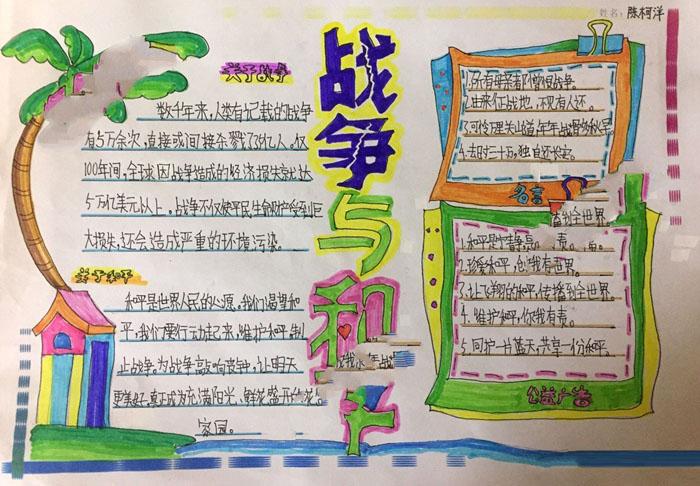 姓名：陈柯洋
战争与和平
关于战争
数千年来，人类有记载的战争
有5万余次，直接或间接杀戮了3亿人。仅
100年间，全球因战争造成的经济损失就达
5万亿美元以上。战争不仅使平民生命财产受到巨
大损失，还会造成严重的环境污染。
关于和平
和平是世界人民的心愿。我们渴望和
平，我们要行动起来，维护和平，制
止战争。为战争敲响丧钟，让明天
更美好，真正成为充满阳光、鲜花盛开的
家园。
1.所有母亲都憎恨战争。
2.由来征战地，不见有人还。
3.可怜万里关山道，年年战骨多秋草
4.去时三十万，独自还长安。
名言
播到全世界
1.和平是 责。
2.珍爱和平，创 有世界。
3.让飞翔的和平，传播到全世界。
4.维护和平，你我有责。
5.同护一片蓝天，共享一份和平。
公益广告